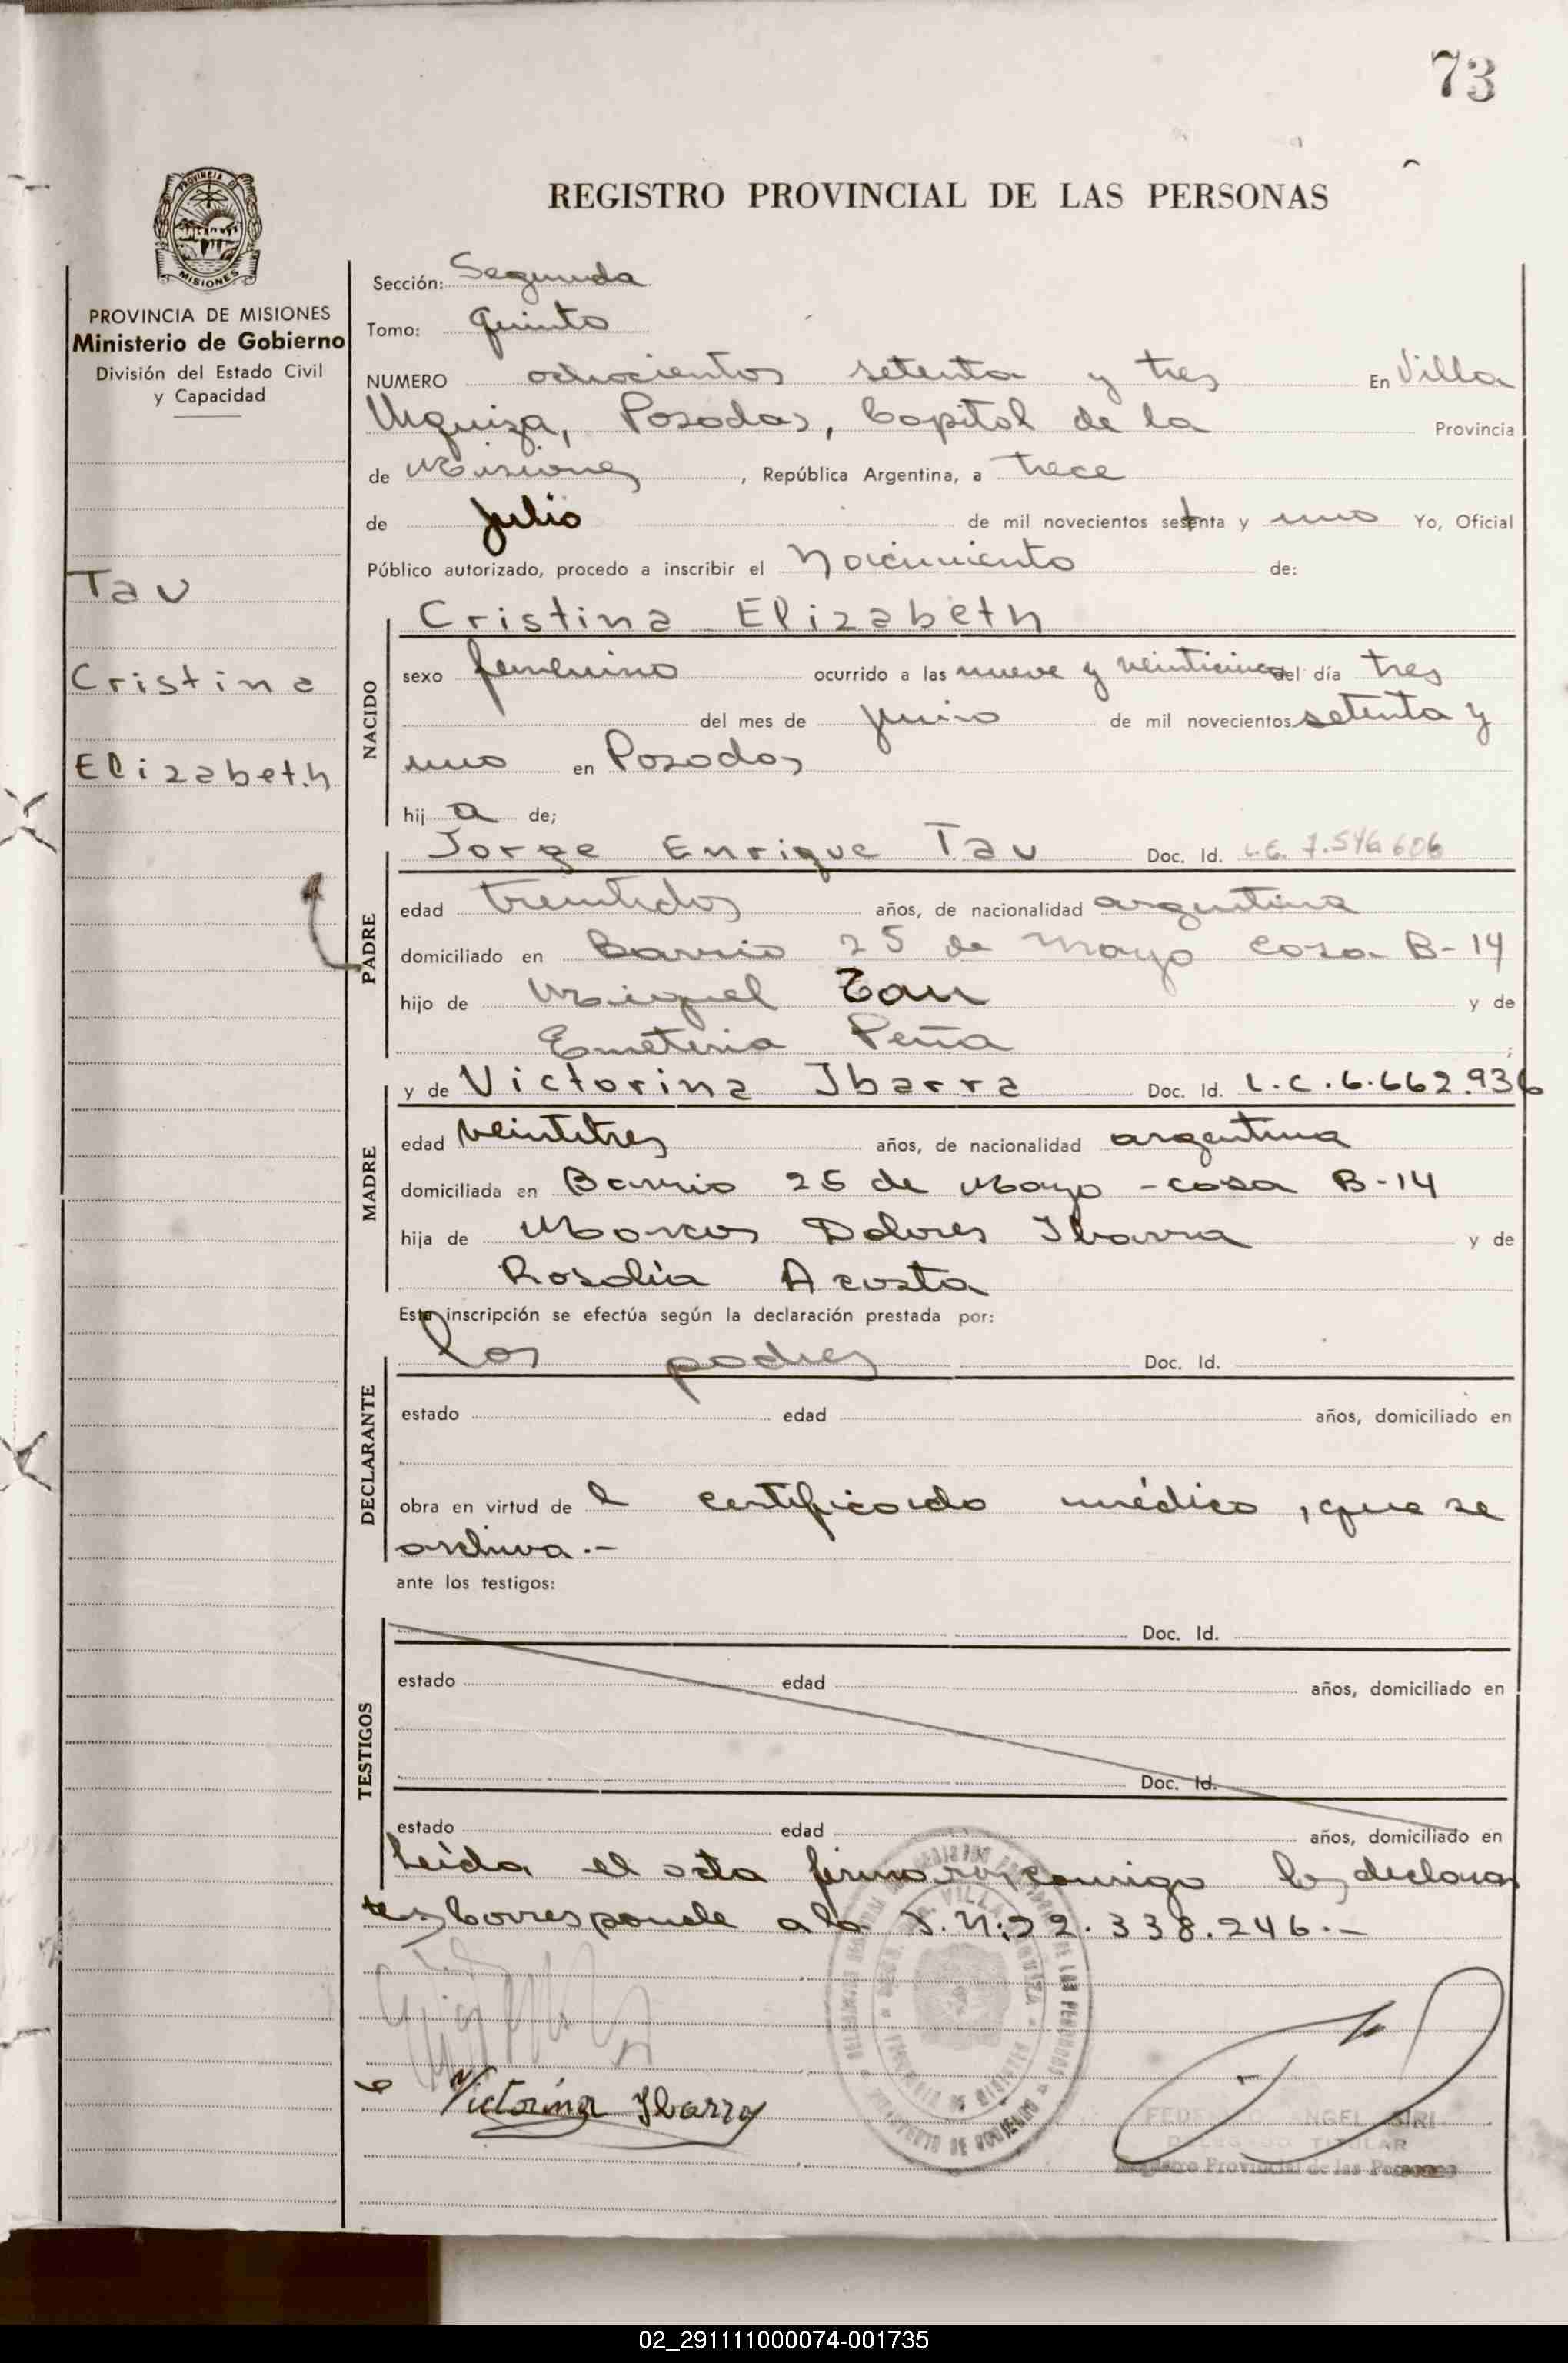 73
REGISTRO PROVINCIAL DE LAS PERSONAS
PROVINCIA DE MISIONES
Ministerio de Gobierno
División del Estado Civil
y Capacidad
Tau
Cristina
Elizabeth
Sección: Segunda
Tomo: quinto
NUMERO ochocientos setenta y tres En Villa
Urquiza, Posadas, Capital de la Provincia
de Misiones, República Argentina, a trece
de julio de mil novecientos setenta y uno Yo, Oficial
Público autorizado, procedo a inscribir el Nacimiento de:
NACIDO
Cristina Elizabeth
sexo femenino ocurrido a las nueve y veinticinco del día tres
del mes de junio de mil novecientos setenta y
uno en Posadas
hij a de;
PADRE
Jorge Enrique Tau Doc. Id. L.E. 7.546.606
edad treintidos años, de nacionalidad argentina
domiciliado en Barrio 25 de Mayo casa B-14
hijo de Miguel Tau y de
Emeteria Peña ;
MADRE
y de Victorina Ibarra Doc. Id. L.C.6.662.936
edad veintitres años, de nacionalidad argentina
domiciliada en Barrio 25 de Mayo - casa B-14
hija de Marcos Dolores Ibarra y de
Rosalia Acosta
Esta inscripción se efectúa según la declaración prestada por:
DECLARANTE
los padres Doc. Id.
estado edad años, domiciliado en
obra en virtud de l certificado médico, que se
archiva.-
ante los testigos:
TESTIGOS
Doc. Id.
estado edad años, domiciliado en
Doc. Id.
estado edad años, domiciliado en
Leída el acta firman conmigo los declaran
tes Corresponde a la D.N: 22.338.246.-
Victorina Ibarra
ANGEL SIRI
DELEGADO TITULAR
Registro Provincial de las Personas
02_291111000074-001735